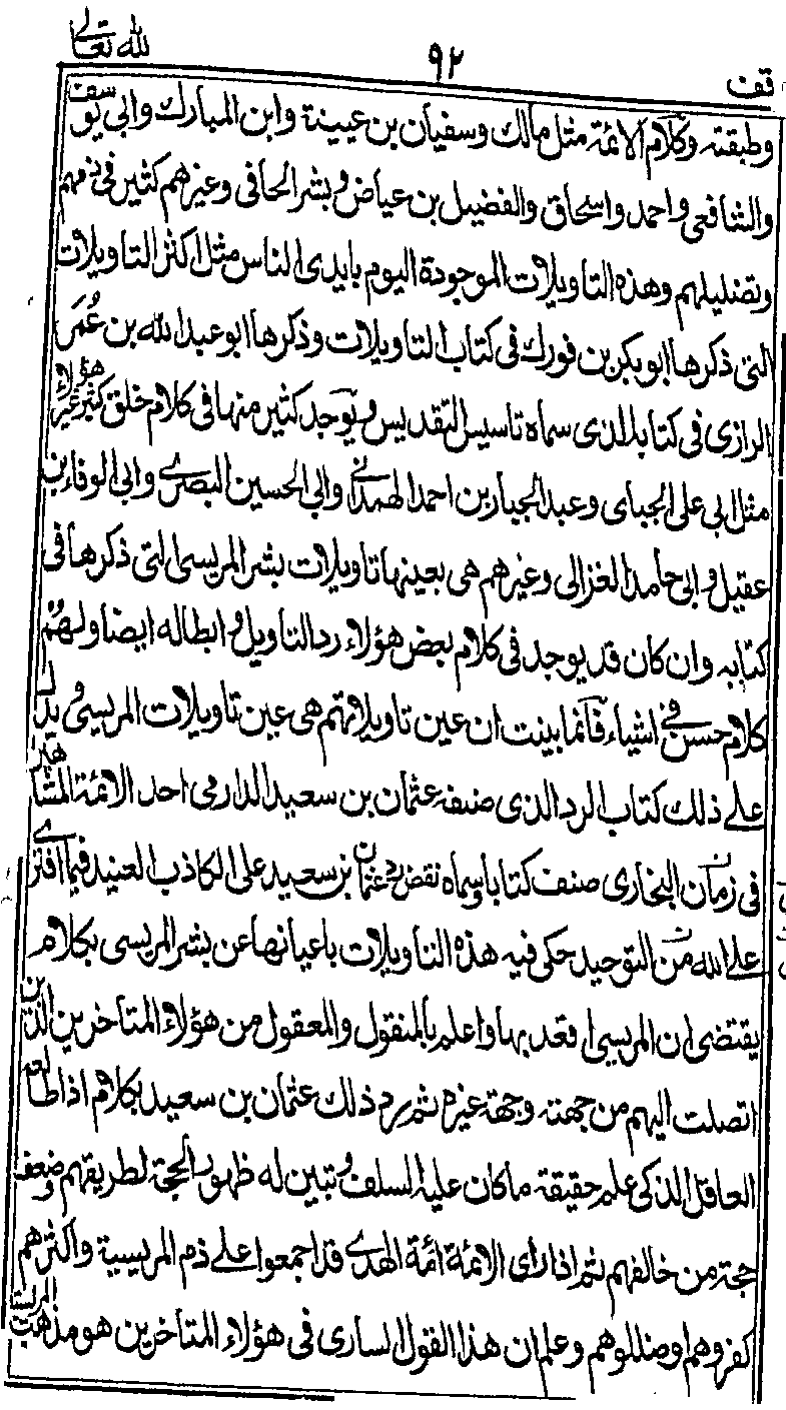 لله تعالى
٩٢
قف
وطبقته وكلام الائمة مثل مالك وسفيان بن عيينة وابن المبارك وابي يوسف
والشافعي واحمد واسحاق والفضيل بن عياض وبشر الحافي وغيرهم كثير في ذمهم
وتضليلهم وهذه التاويلات الموجودة اليوم بايدي الناس مثل اكثر التاويلات
التي ذكرها ابو بكر بن فورك في كتاب التاويلات وذكرها ابو عبد الله بن عُمَر
الرازي في كتابه الذي سماه تاسيس التقديس ويوجد كثير منها في كلام خلق كثير غير هؤلاء
مثل ابي علي الجباي وعبد الجبار بن احمد الهمداني وابي الحسين البصري وابي الوفاء بن
عقيل وابي حامد الغزالي وغيرهم هي بعينها تاويلات بشر المريسي التي ذكرها في
كتابه وان كان قد يوجد في كلام بعض هؤلاء رد التاويل وابطاله ايضا ولهم
كلام حسن في اشياء فانما بينت ان عين تاويلاتهم هي عين تاويلات المريسي ويدل
على ذلك كتاب الرد الذي صنفه عثمان بن سعيد الدارمي احد الائمة المشاهير
في زمان البخاري صنف كتابا وسماه نقض رد عثمان بن سعيد على الكاذب العنيد فيما افترى
على الله من التوحيد حكى فيه هذه التاويلات باعيانها عن بشر المريسي بكلام
يقتضي ان المريسي اقعد بها واعلم بالمنقول والمعقول من هؤلاء المتاخرين الذين
اتصلت اليهم من جهته وجهة غيره ثم رد ذلك عثمان بن سعيد بكلام اذا طالعه
العاقل الذكي علم حقيقة ما كان عليه السلف وتبين له ظهور الحجة لطريقهم وضعف
حجة من خالفهم ثم اذا راى الائمة ائمة الهدى قد اجمعوا على ذم المريسية واكثرهم
كفروهم وضللوهم وعلم ان هذا القول الساري في هؤلاء المتاخرين هو مذهب المريسية